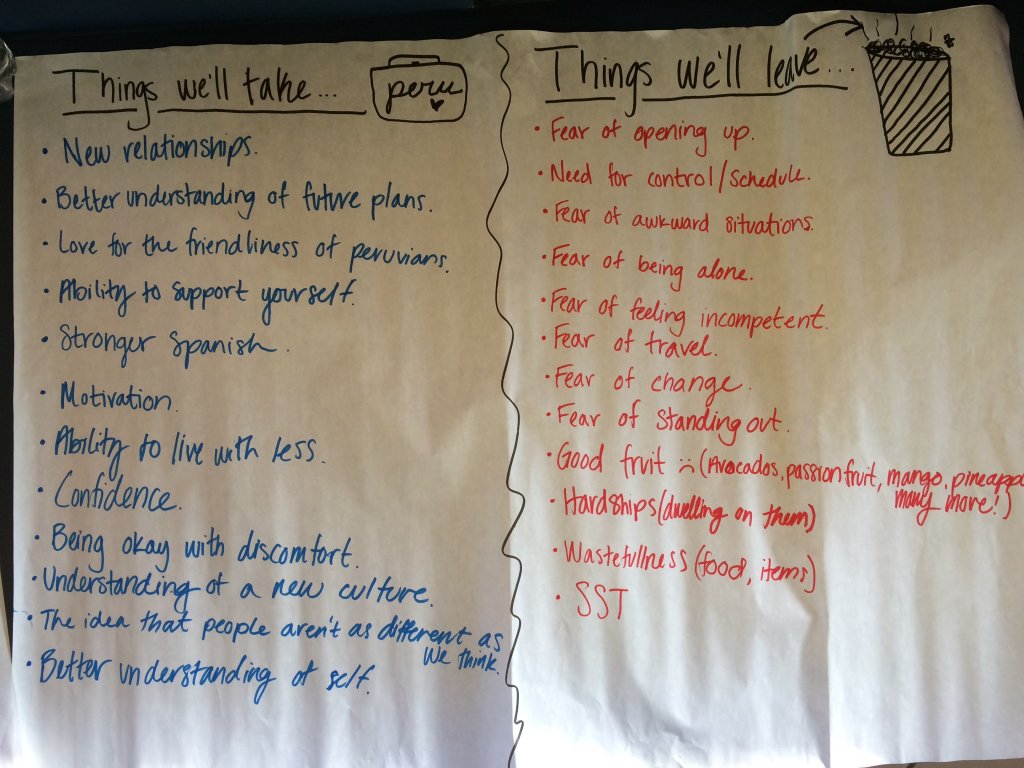 Things we'll take...
peru
• New relationships.
• Better understanding of future plans.
• Love for the friendliness of peruvians.
• Ability to support yourself.
• Stronger Spanish.
• Motivation.
• Ability to live with less.
• Confidence.
• Being okay with discomfort.
• Understanding of a new culture.
• The idea that people aren't as different as
we think.
• Better understanding of self.
Things we'll leave...
• Fear of opening up.
• Need for control/schedule.
• Fear of awkward situations.
• Fear of being alone.
• Fear of feeling incompetent.
• Fear of travel.
• Fear of change.
• Fear of standing out.
• Good fruit :( (Avocados, passionfruit, mango, pineapp
many more!)
• Hardships (dwelling on them)
• Wastefullness (food, items)
• SST